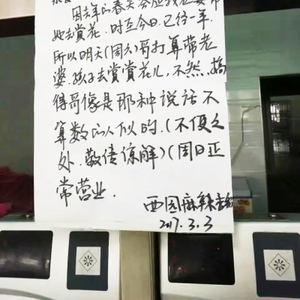 因去年的春天答应我老婆带
她去赏花.时至今日.已经一年.
所以明天(周六)哥打算带老
婆孩子去赏赏花儿,不然,搞
得哥像是那种说话不
算数的人似的.(不便之
处.敬请谅解)(周日正
常营业.
西园麻辣
2017.3.3